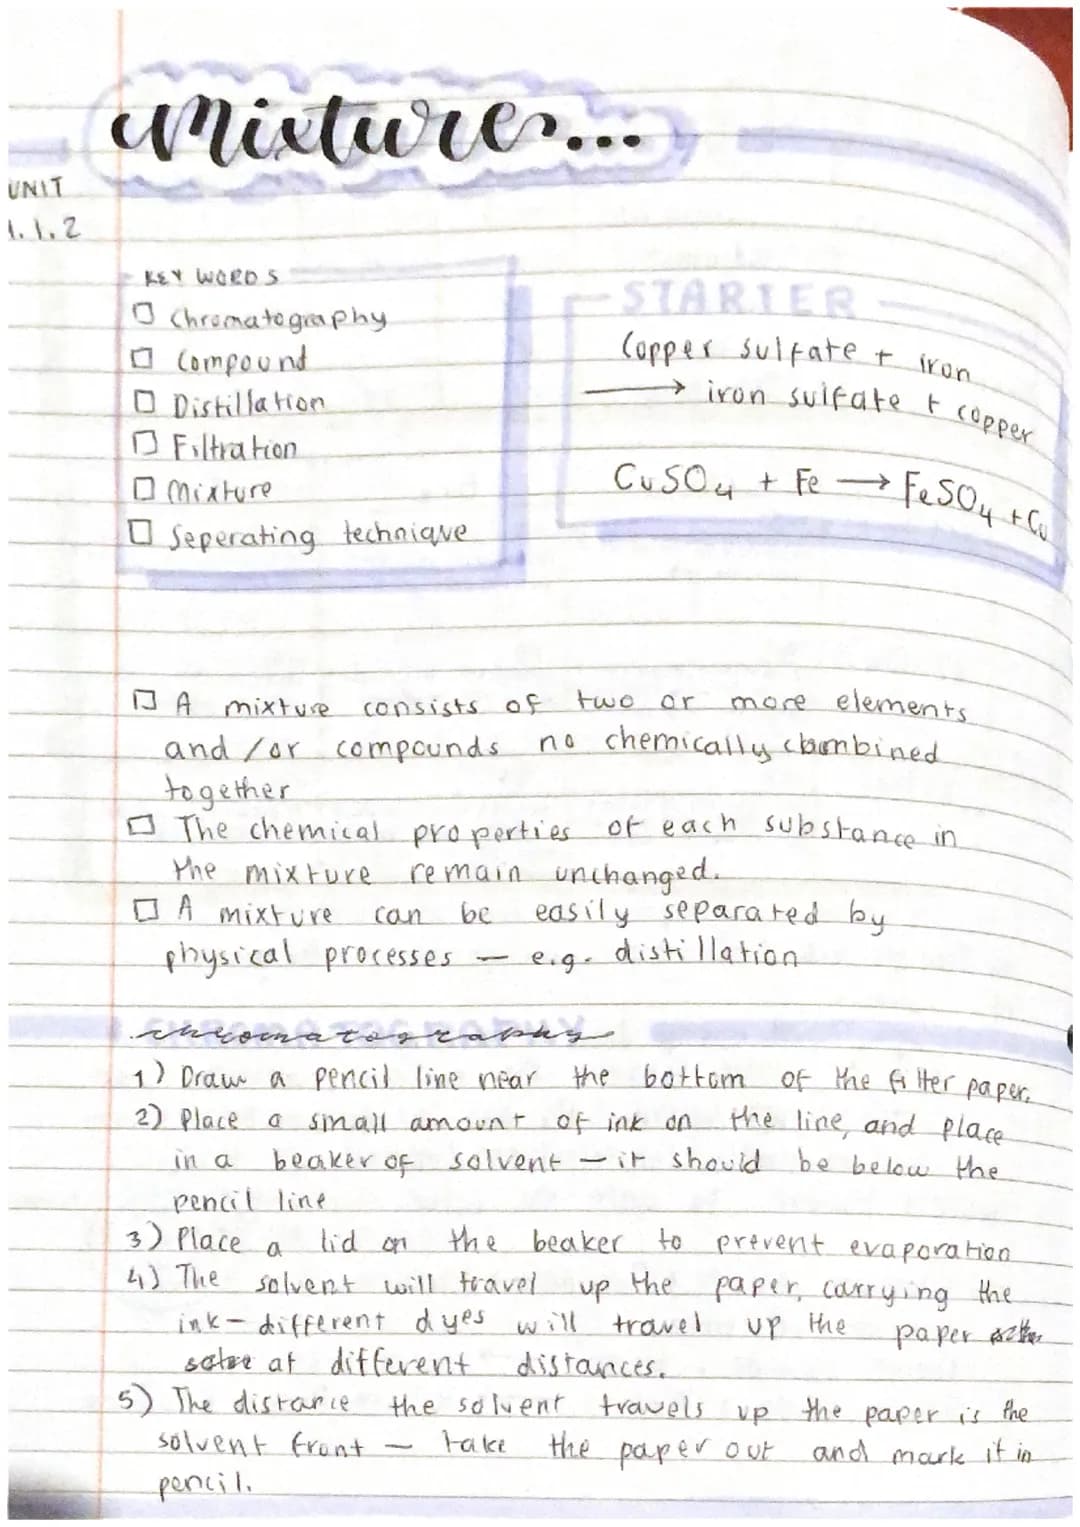 Mixtures...
UNIT
1.1.2
KEY WORDS
Chromatography
Compound
Distillation
Filtration
Mixture
Seperating technique
STARTER
Copper sulfate + iron
→ iron sulfate + copper
CuSO4 + Fe → FeSO4 + Cu
A mixture consists of two or more elements
and/or compounds no chemically combined
together
The chemical properties of each substance in
the mixture remain unchanged.
A mixture can be easily separated by
physical processes — e.g. distillation
chromatography
1) Draw a pencil line near the bottom of the filter paper.
2) Place a small amount of ink on the line, and place
in a beaker of solvent — it should be below the
pencil line
3) Place a lid on the beaker to prevent evaporation
4) The solvent will travel up the paper, carrying the
ink - different dyes will travel up the paper
at different distances.
5) The distance the solvent travels up the paper is the
solvent front — take the paper out and mark it in
pencil.